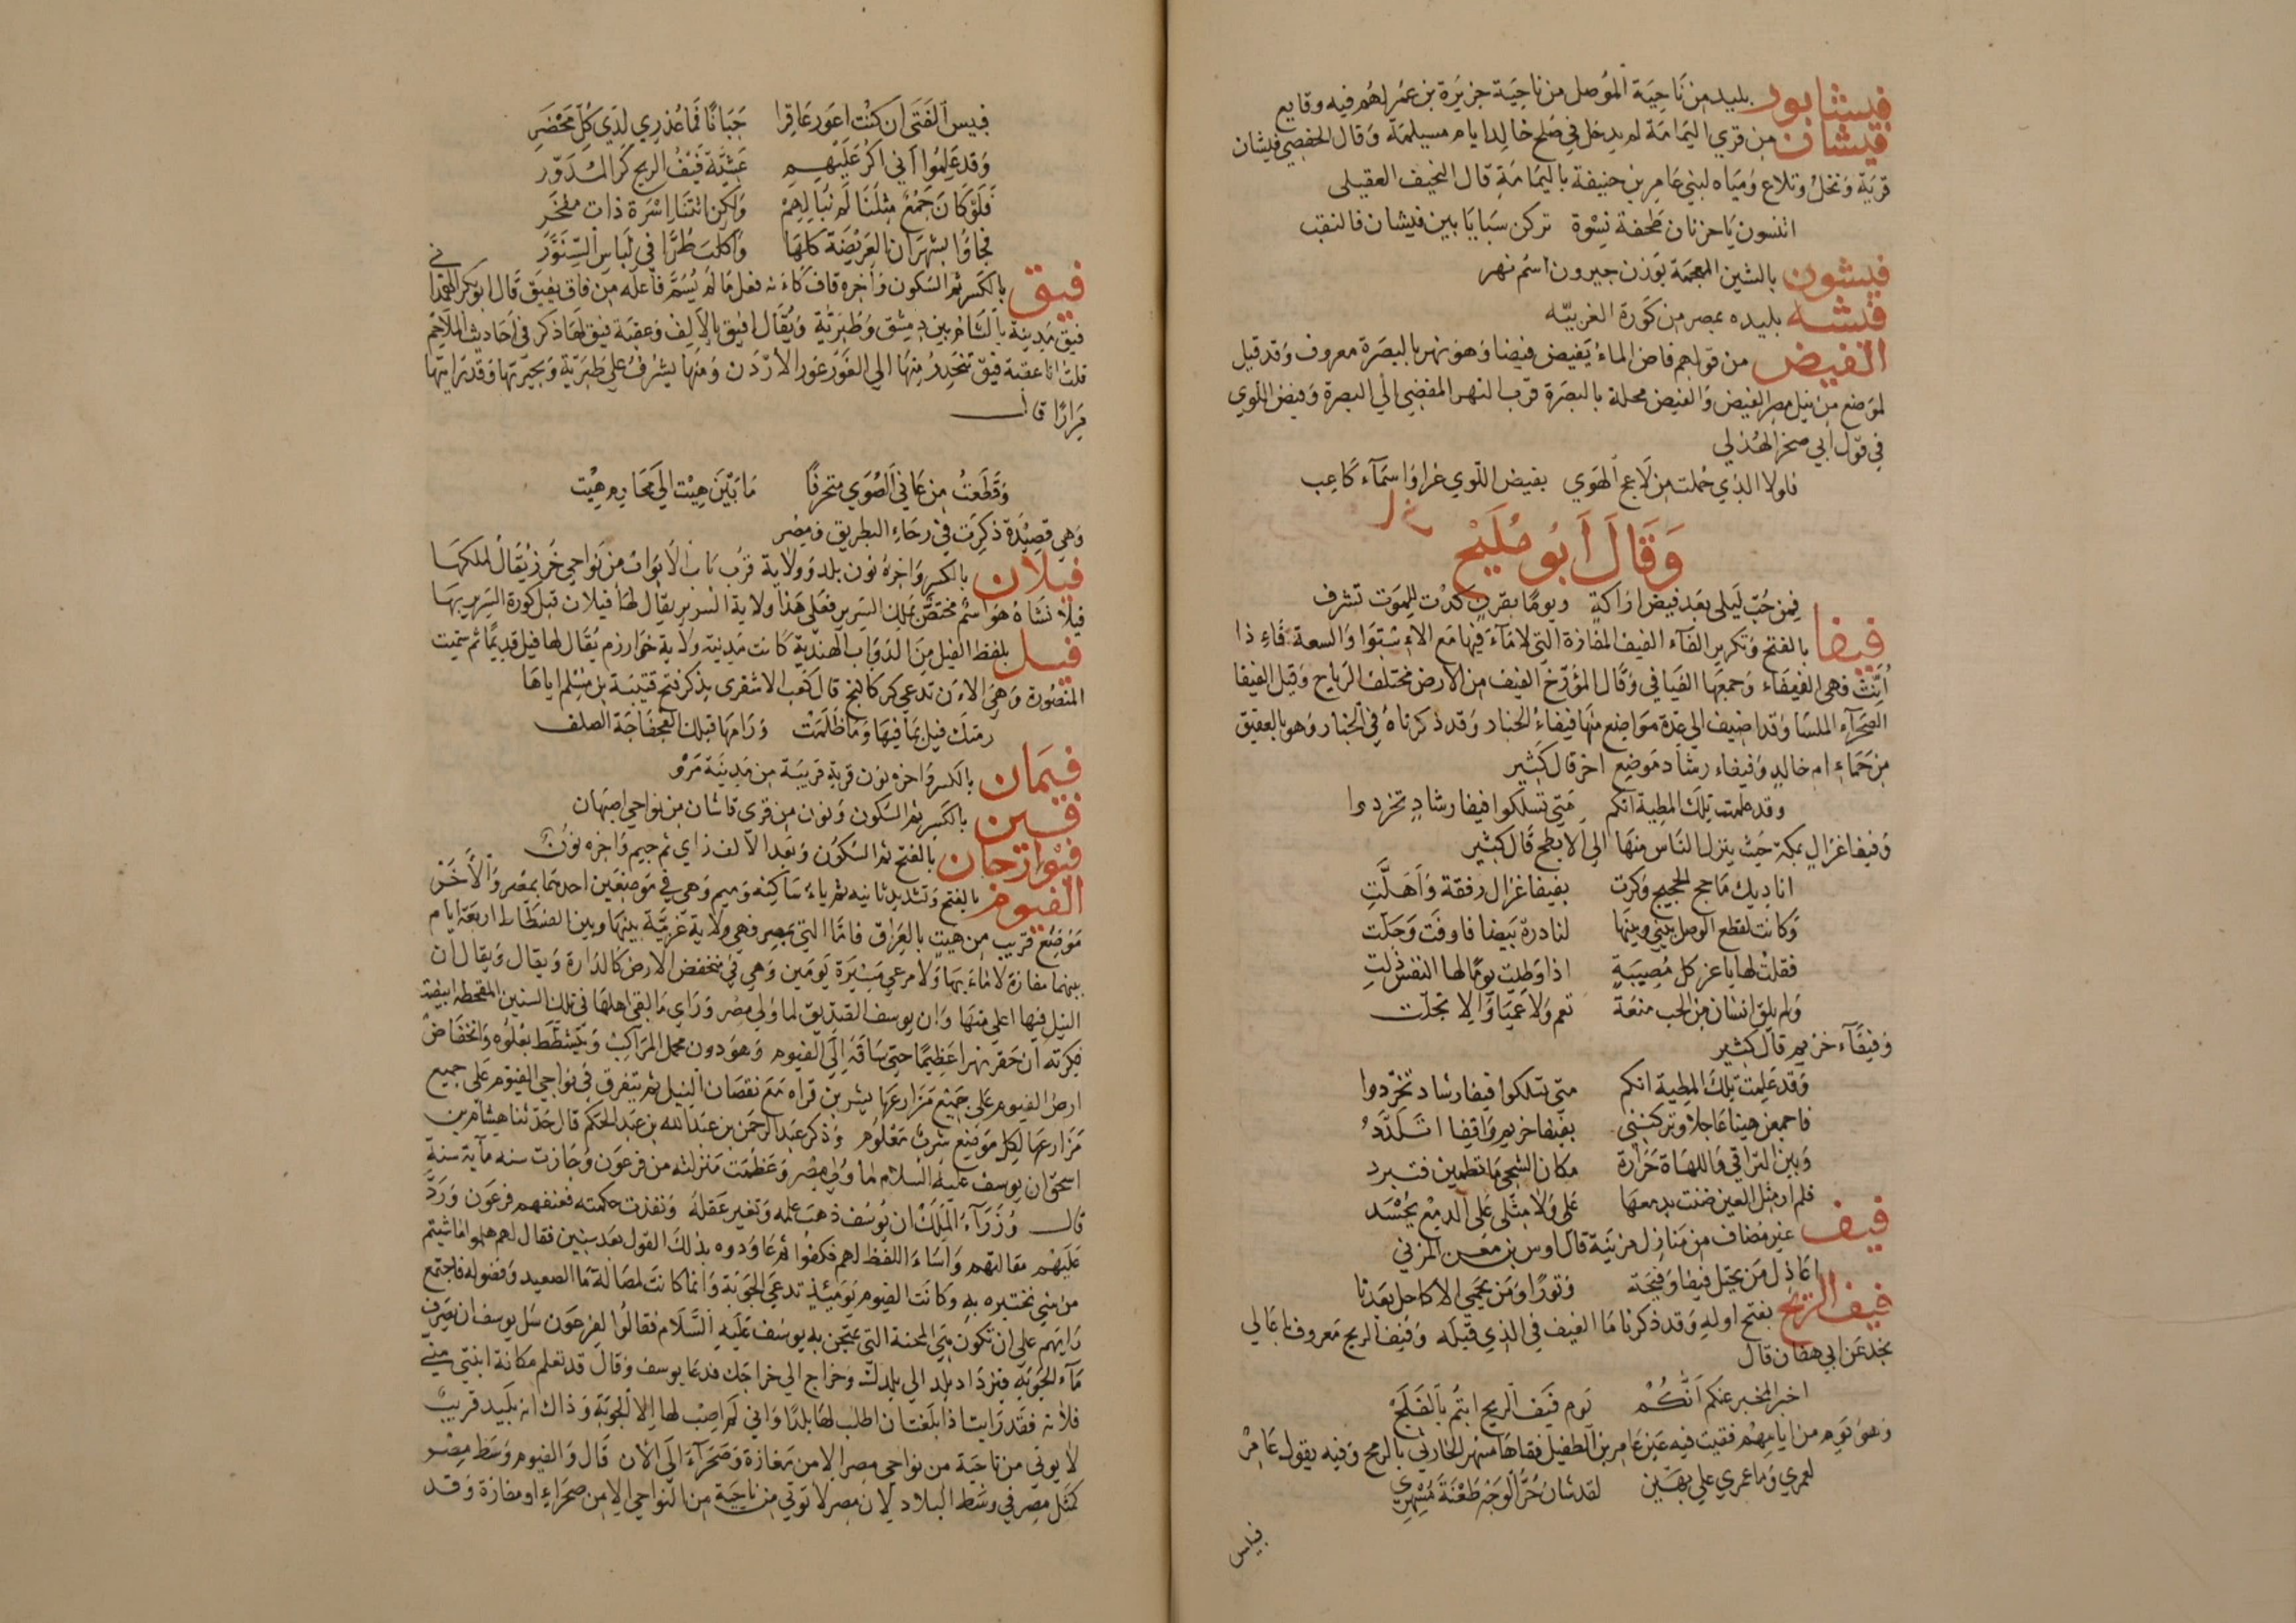 فيشابور بليد من ناحية الموصل من ناحية جزيرة بن عمر لهم فيه وقايع
فيشان من قري اليمامة لم يدخل في صلح خالد ايام مسيلمة وقال الحفصي فيشان
قرية ونخل وتلاع ومياه لبني عامر بن حنيفة باليمامة قال النحيف العقيلي
اتنسون يا حزنان طحفة نسوة تركن سبايا بين فيشان فالنقب
فيشون بالشين المعجمة بوزن جيرون اسم نهر
فيشه بليده بمصر من كورة الغربيه
الفيض من قولهم فاض الماء يفيض فيضا وهو نهر بالبصرة معروف وقد قيل
لموضع من نيل مصر الفيض والفيض محلة بالبصرة قرب النهر المفضي الي البصرة وفيض اللوي
في قول ابي صخر الهذلي
فلولا الذي حملت من لاعج الهوي بفيض اللوي غرا واسماء كاعب
وقال أبو مليح
فمن حب ليلى بعد فيض اراكة ويوما بقرن كدت للموت تشرف
فيفا بالفتح وتكرير الفاء الفيف المفازة التي لا ماء فيها مع الاستوا والسعة فاذا
أنث فهي الفيفاء وجمعها الفيافي وقال المؤرخ الفيف من الارض مختلف الرياح وقيل الفيفا
الصحراء الملسا وقد اضيف الي عدة مواضع منها فيفاء الخبار وقد ذكرناه في الخبار وهو بالعقيق
من حماء ام خالد وفيفاء رشاد موضع اخر قال كثير
وقد علمت تلك المطية انكم متي تسلكوا فيفا رشاد تخردوا
وفيفا غزال بمكة حيث ينزل الناس منها الي الابطح قال كثير
اناديك ما حج الحجيج وكبرت بفيفا غزال رفقة وأهلت
وكانت لقطع الوصل بيني وبينها لنادرة بيضا فاوفت وحلت
فقلت لها يا عز كل مصيبة اذا وطيت يوما لها النفس ذلت
ولم يلق انسان من الحب منعة تعم ولا عميا والا تجلت
وفيفاء خزيم قال كثير
وقد علمت تلك المطية انكم متي تسلكوا فيفا رشاد تخردوا
فاجمعن هينا عاجلا وتركنني بفيفا خريم واقفا اتلدد
وبين التراقي واللهاة حرارة مكان الشجى ما تطمين فتبرد
فلم ار مثل العين ضنت بدمعها علي ولا مثلي على الدمع يحسد
فيف غير مضاف من منازل مزينة قال اوس بن معن المزني
اعاذل من يحتل فيفا وفيحة وثورا ومن يحمي الاكاحل بعدنا
فيف الريح بفتح اوله وقد ذكرنا ما الفيف في الذي قبله وفيف الريح معروف باعالي
نجد عن ابي هفان قال
اخبر المخبر عنكم أنكم يوم فيف الريح ابتم بالفلج
وهو يوم من ايامهم فقيت فيه عين عامر بن الطفيل فقاها مسهر الحارثي بالرمح وفيه يقول عامر
لعمري وما عمري علي بهين لقد شان حر الوجه طعنة مسهر
فبيس
فبيس الفتى ان كنت اعور عاقرا جبانا فما عذري لدي كل محضر
وقد علموا أني اكر عليهم عشية فيف الريح كر المدور
فلو كان جمع مثلنا لم نبالهم ولكن اتتنا اسرة ذات مفخر
فجاؤا بشهران العريضة كلها واكلب طرا في لباس السنور
فيق بالكسر ثم السكون وآخره قاف كأنه فعل ما لم يسم فاعله من فاق يفيق قال ابو بكر الهمداني
فيق مدينة بالشام بين دمشق وطبرية ويقال افيق بالالف وعقبة فيق لها ذكر في احاديث الملاحم
قلت انا عقبة فيق تنحدر منها الي الغور غور الاردن ومنها يشرف علي طبرية وبحيرتها وقد رايتها
مرارا قال
وقطعت من عافي الصوي متحرفا ما بين هيت الي مخارم هيت
وهي قصيدة ذكرت في رحاء البطريق ومضر
فيلان بالكسر واخره نون بلد وولاية قرب باب الابواب من نواحي خزر يقال لملكها
فيلان شاه هو اسم مختص بملك السرير فعلي هذا ولاية السرير يقال لها فيلان قبل كورة السرير بها
فيل بلفظ الفيل من الدواب الهندية كانت مدينة ولاية خوارزم يقال لها فيل قديما ثم سميت
المنصورة وهي الان تدعي كركانج قال كعب الاشقري يذكر فتح قتيبة بن مسلم اياها
رمتك فيل بما فيها وما ظلمت ورامها قبلك الفجفاجة الصلف
فيمان بالكسر واخره نون قرية قريبة من مدينة مرو
فين بالكسر ثم السكون ونون من قري قاشان من نواحي اصبهان
فيوازجان بالفتح ثم السكون وبعد الالف زاي ثم جيم واخره نون
الفيوم بالفتح وتشديد ثانيه ثم ياء ساكنه وميم وهي في موضعين احدهما بمصر والأخر
موضع قريب من هيت بالعراق فاما التي بمصر فهي ولاية غربية بينها وبين الفسطاط اربعة ايام
بينهما مفازة لا ماء بها ولا مرعي مسيرة يومين وهي في منخفض الارض كالدارة ويقال ويقال ان
النيل فيها اعلي منها وان يوسف الصديق لما ولي مصر وراي ما القي اهلها في تلك السنين المقحطة اقتضت
فكرته ان حفر نهرا عظيما حتى ساقه إلي الفيوم وهو دون محمل المراكب ويتشطط بعلوه وانخفاض
ارض الفيوم على جميع مزارعها يشرب قراه مع نقصان النيل ثم يتفرق في نواحي الفيوم على جميع
مزارعها لكل موضع شرب معلوم وذكر عبد الرحمن بن عبد الله بن عبد الحكم قال حدثنا هشام بن
اسحق ان يوسف عليه السلام لما ولي مصر وعظمت منزلته من فرعون وجازت سنه مآية سنة
قال وزرآء الملك ان يوسف ذهب علمه وتغير عقله ونفدت حكمته فعنفهم فرعون ورد
عليهم مقالتهم واساء اللفظ لهم فكفوا ثم عاودوه بذلك القول بعد سنين فقال لهم هلموا ما شيتم
من شي نختبره به وكانت الفيوم يوميذ تدعي الجوبة وانما كانت لمصالة ما الصعيد وفضوله فاجتمع
رايهم على ان تكون هي المحنة التي يمتحن بها يوسف عليه السلام فقالوا لفرعون سل يوسف ان يصرف
مآء الجوبة فيزداد بلد الي بلدك وخراج الي خراجك فدعا يوسف وقال قد تعلم مكانة ابنتي مني
فلانة فقد رايت اذا بلغت ان اطلب لها بلدا واني لم اصب لها إلا الجوبة وذاك انه بليد قريب
لا يوتي من ناحية من نواحي مصر الا من مفازة وصحرآء الي الان قال والفيوم وسط مصر
كمثل مصر في وسط البلاد لان مصر لا توتي من ناحية من النواحي الا من صحراء او مفازة وقد